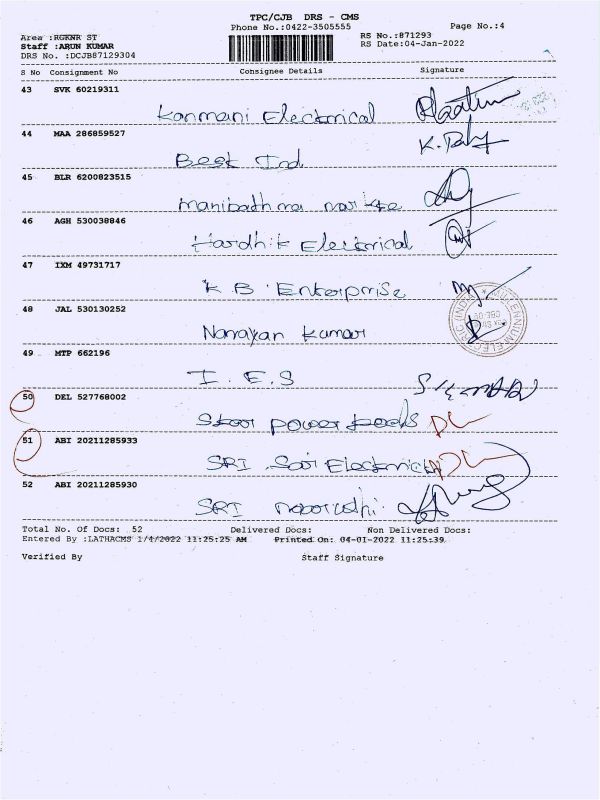 TPC/CJB DRS - CMS
Phone No.:0422-3505555 Page No.:4
Area :RGKNR ST RS No.:871293
Staff :ARUN KUMAR RS Date:04-Jan-2022
DRS No. :DCJB87129304
S No Consignment No Consignee Details Signature
43 SVK 60219311
Kanmani Electrical
44 MAA 286859527 K.
Best Ind
45 BLR 6200823515
46 AGH 530038846
Hardhik Electrical
47 IXM 49731717
K B Enterprise
48 JAL 530130252
Narayan Kumar
49 MTP 662196
I. E. S
50 DEL 527768002
Power
51 ABI 20211285933
SRI Sai Electrical
52 ABI 20211285930
SRI
Total No. Of Docs: 52 Delivered Docs: Non Delivered Docs:
Entered By :LATHACMS 1/4/2022 11:25:25 AM Printed On: 04-01-2022 11:25:39
Verified By Staff Signature